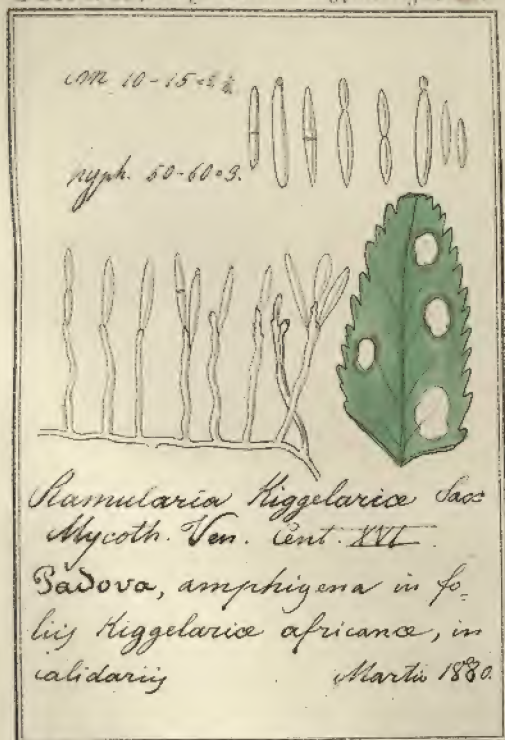 con 10-15 = 2 ½
hyph. 50-60 = 3.
Ramularia Kiggelariæ Sacc
Mycoth. Ven. Cent. XVI
Padova, amphigena in fo-
liis Kiggelariæ africanæ, in
calidariis Martio 1880.